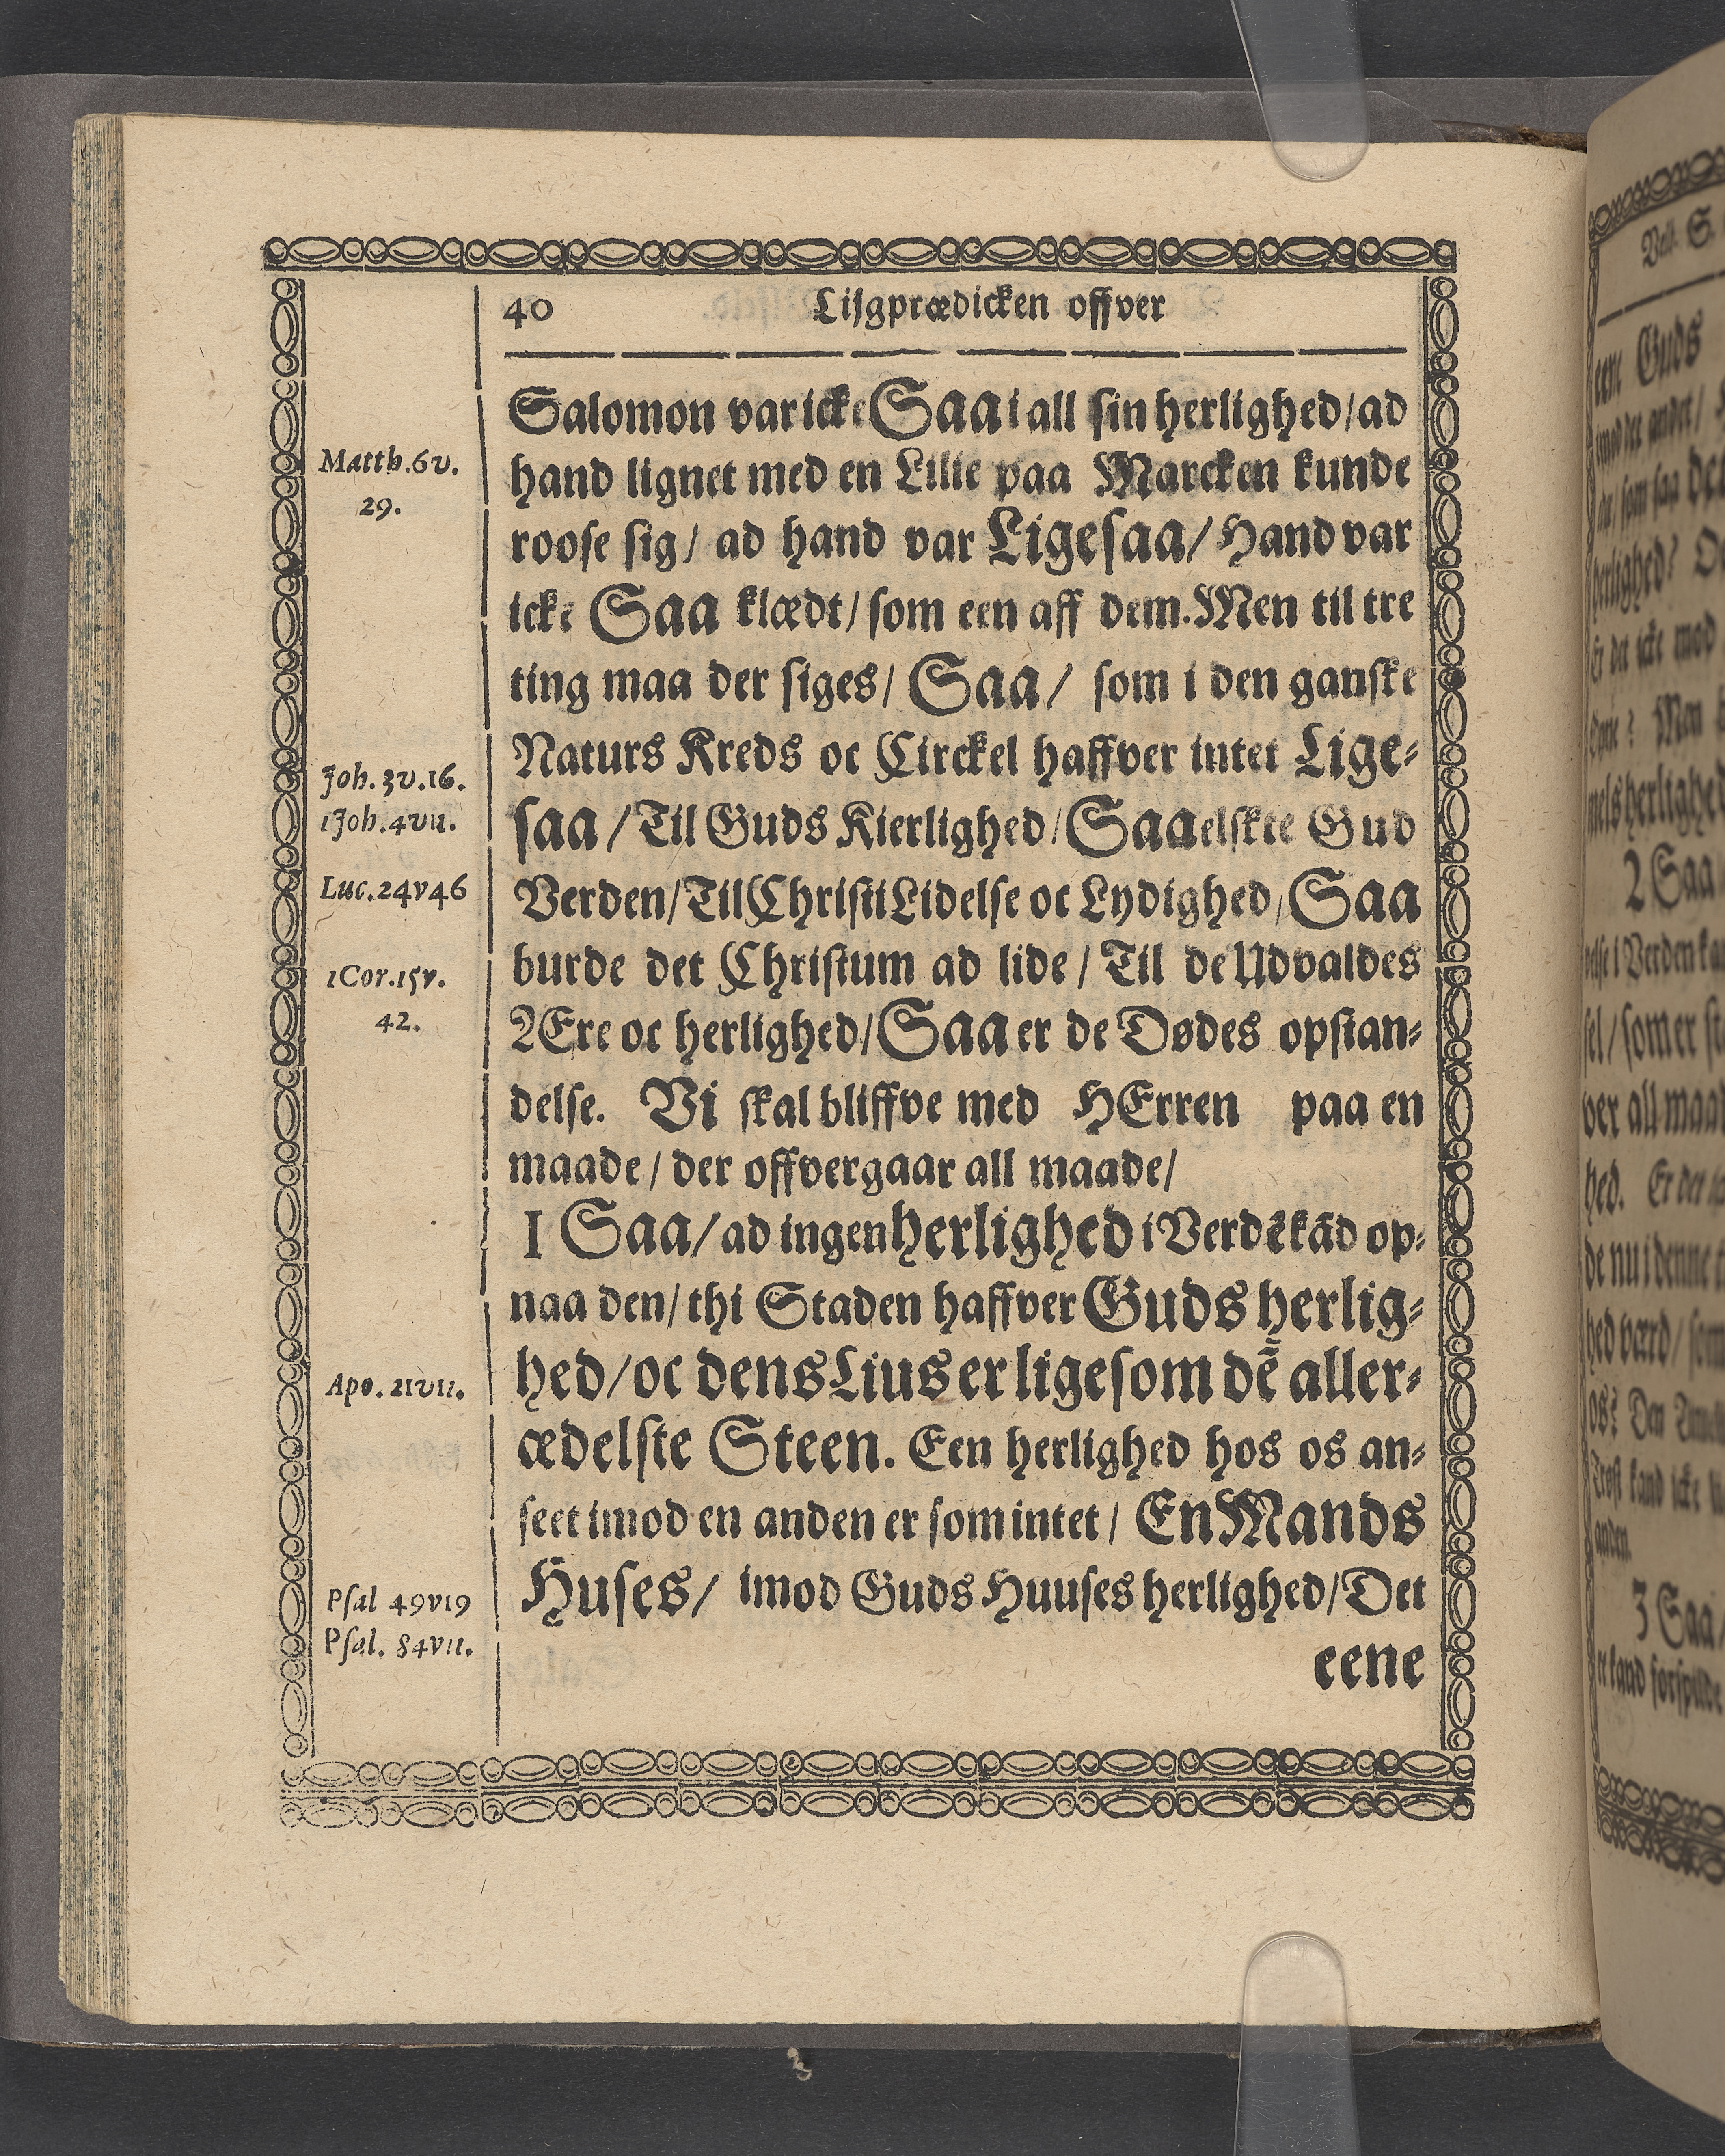 40 Lijgprædicken offver
Salomon var icke Saa i all sin herlighed/ ad
hand lignet med en Lilie paa Marcken kunde
roose sig/ ad hand var Ligesaa/ Hand var
icke Saa klædt/ som een aff dem. Men til tre
ting maa der siges/ Saa/ som i den ganske
Naturs Kreds oc Circkel haffver intet Lige-
saa/ Til Guds Kierlighed/ Saa elskte Gud
Verden/ Til Christi Lidelse oc Lydighed/ Saa
burde det Christum ad lide/ Til de Udvaldes
Ære oc herlighed/ Saa er de Dødes opstan-
delse. Vi skal bliffve med HErren paa en
maade/ der offvergaar all maade/
1 Saa/ ad ingen herlighed i Verdē kād op-
naa den/ thi Staden haffver Guds herlig-
hed/ oc dens Lius er ligesom dē aller-
ædelste Steen. Een herlighed hos os an-
seet imod en anden er som intet/ En Mands
Huses/ imod Guds Huuses herlighed/ Det
eene
Matth. 6 v.
29.
Joh. 3 v. 16.
1 Joh. 4 v 11.
Luc. 24 v 46
1 Cor. 15 v.
42.
Apo. 21 v 11.
Psal 49 v 19
Psal. 84 v 11.
een Guds
2 Saa
hed.
anden.
3 Saa/